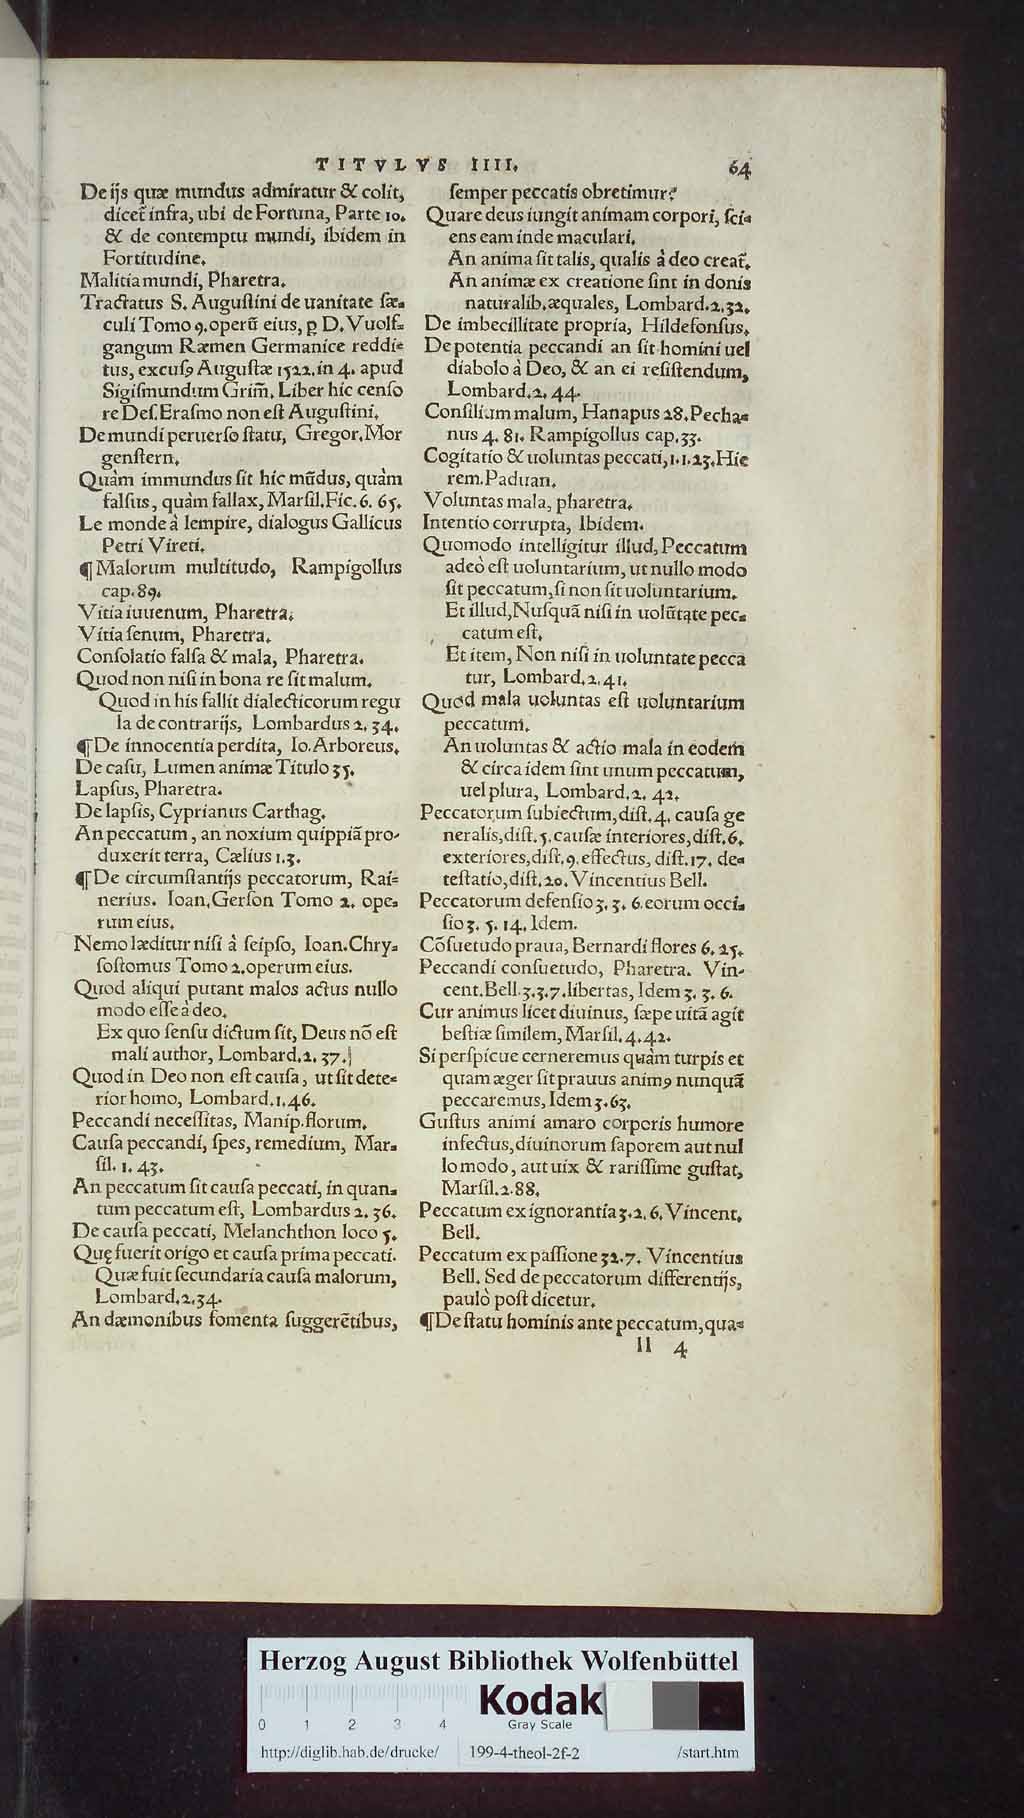 TITVLVS IIII.
64
De ijs quæ mundus admiratur & colit,
dicet̃ infra, ubi de Fortuna, Parte 10.
& de contemptu mundi, ibidem in
Fortitudine.
Malitia mundi, Pharetra.
Tractatus S. Augustini de uanitate sæ=
culi Tomo 9. operũ eius, ꝑ D. Vuolf=
gangum Ræmen Germanice reddi=
tus, excusꝰ Augustæ 1522. in 4. apud
Sigismundum Grim̃. Liber hic censo
re Des. Erasmo non est Augustini.
De mundi peruerso statu, Gregor. Mor
genstern.
Quàm immundus sit hic mũdus, quàm
falsus, quàm fallax, Marsil. Fic. 6. 65.
Le monde à lempire, dialogus Gallicus
Petri Vireti.
¶ Malorum multitudo, Rampigollus
cap. 89.
Vitia iuuenum, Pharetra.
Vitia senum, Pharetra.
Consolatio falsa & mala, Pharetra.
Quod non nisi in bona re sit malum.
Quod in his fallit dialecticorum regu
la de contrarijs, Lombardus 2. 34.
¶ De innocentia perdita, Io. Arboreus.
De casu, Lumen animæ Titulo 35.
Lapsus, Pharetra.
De lapsis, Cyprianus Carthag.
An peccatum, an noxium quippiã pro-
duxerit terra, Cælius 1. 3.
¶ De circumstantijs peccatorum, Rai=
nerius. Ioan. Gerson Tomo 2. ope=
rum eius.
Nemo læditur nisi à seipso, Ioan. Chry=
sostomus Tomo 2. operum eius.
Quod aliqui putant malos actus nullo
modo esse à deo.
Ex quo sensu dictum sit, Deus nõ est
mali author, Lombard. 2. 37.
Quod in Deo non est causa, ut sit dete=
rior homo, Lombard. 1. 46.
Peccandi necessitas, Manip. florum.
Causa peccandi, spes, remedium, Mar=
sil. 1. 43.
An peccatum sit causa peccati, in quan=
tum peccatum est, Lombardus 2. 36.
De causa peccati, Melanchthon loco 5.
Quę fuerit origo et causa prima peccati.
Quæ fuit secundaria causa malorum,
Lombard. 2. 34.
An dæmonibus fomenta suggerẽtibus,
semper peccatis obretimur?
Quare deus iungit animam corpori, sci=
ens eam inde maculari.
An anima sit talis, qualis à deo creat̃.
An animæ ex creatione sint in donis
naturalib. æquales, Lombard. 2. 32.
De imbecillitate propria, Hildefonsus.
De potentia peccandi an sit homini uel
diabolo à Deo, & an ei resistendum,
Lombard. 2. 44.
Consilium malum, Hanapus 28. Pecha=
nus 4. 81. Rampigollus cap. 33.
Cogitatio & uoluntas peccati, 1. 1. 23. Hie
rem. Paduan.
Voluntas mala, pharetra.
Intentio corrupta, Ibidem.
Quomodo intelligitur illud, Peccatum
adeò est uoluntarium, ut nullo modo
sit peccatum, si non sit uoluntarium.
Et illud, Nusquã nisi in uolũtate pec=
catum est.
Et item, Non nisi in uoluntate pecca
tur, Lombard. 2. 41.
Quod mala uoluntas est uoluntarium
peccatum.
An uoluntas & actio mala in eodem
& circa idem sint unum peccatum,
uel plura, Lombard. 2. 42.
Peccatorum subiectum, dist. 4. causa ge
neralis, dist. 5. causæ interiores, dist. 6.
exteriores, dist. 9. effectus, dist. 17. de=
testatio, dist. 20. Vincentius Bell.
Peccatorum defensio 3. 3. 6. eorum occi=
sio 3. 5. 14. Idem.
Cõsuetudo praua, Bernardi flores 6. 25.
Peccandi consuetudo, Pharetra. Vin-
cent. Bell. 3. 3. 7. libertas, Idem 3. 3. 6.
Cur animus licet diuinus, sæpe uitã agit
bestiæ similem, Marsil. 4. 42.
Si perspicue cerneremus quàm turpis et
quam æger sit prauus animꝰ nunquã
peccaremus, Idem 3. 63.
Gustus animi amaro corporis humore
infectus, diuinorum saporem aut nul
lo modo, aut uix & rarissime gustat,
Marsil. 2. 88.
Peccatum ex ignorantia 3. 2. 6. Vincent.
Bell.
Peccatum ex passione 32. 7. Vincentius
Bell. Sed de peccatorum differentijs,
paulò post dicetur.
¶ De statu hominis ante peccatum, qua=
ll 4
Herzog August Bibliothek Wolfenbüttel
Kodak
Gray Scale
0 1 2 3 4
http://diglib.hab.de/drucke/ 199-4-theol-2f-2 /start.htm